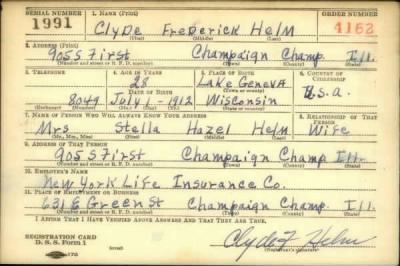 SERIAL NUMBER 1. NAME (Print) ORDER NUMBER
1991 Clyde Frederick Helm 4162
(First) (Middle) (Last)
2. ADDRESS (Print)
905 S First Champaign Champ. Ill.
(Number and street or R. F. D. number) (Town) (County) (State)
3. TELEPHONE 4. AGE IN YEARS 5. PLACE OF BIRTH 6. COUNTRY OF CITIZENSHIP
28 Lake Geneva
DATE OF BIRTH (Town or county)
8049 July 1 - 1912 Wisconsin U.S.a.
(Exchange) (Number) (Mo.) (Day) (Yr.) (State or country)
7. NAME OF PERSON WHO WILL ALWAYS KNOW YOUR ADDRESS 8. RELATIONSHIP OF THAT PERSON
Mrs Stella Hazel Helm Wife
(Mr., Mrs., Miss) (First) (Middle) (Last)
9. ADDRESS OF THAT PERSON
905 S First Champaign Champ Ill.
(Number and street or R. F. D. number) (Town) (County) (State)
10. EMPLOYER'S NAME
New York Life Insurance Co.
11. PLACE OF EMPLOYMENT OR BUSINESS
631 E Green St Champaign Champ. Ill
(Number and street or R. F. D. number) (Town) (County) (State)
I AFFIRM THAT I HAVE VERIFIED ABOVE ANSWERS AND THAT THEY ARE TRUE.
REGISTRATION CARD
D. S. S. Form 1 Clyde F Helm
(Registrant's signature)